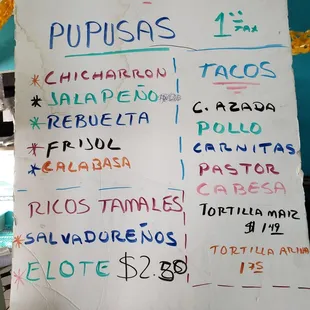 PUPUSAS
1 TAX
* CHICHARRON
* JALAPEÑO
* REBUELTA
* FRIJOL
* CALABASA
TACOS
C. AZADA
POLLO
CARNITAS
PASTOR
CABESA
TORTILLA MAIZ
$ 1.49
TORTILLA ARINA
1.75
RICOS TAMALES
* SALVADOREÑOS
* ELOTE $2.50